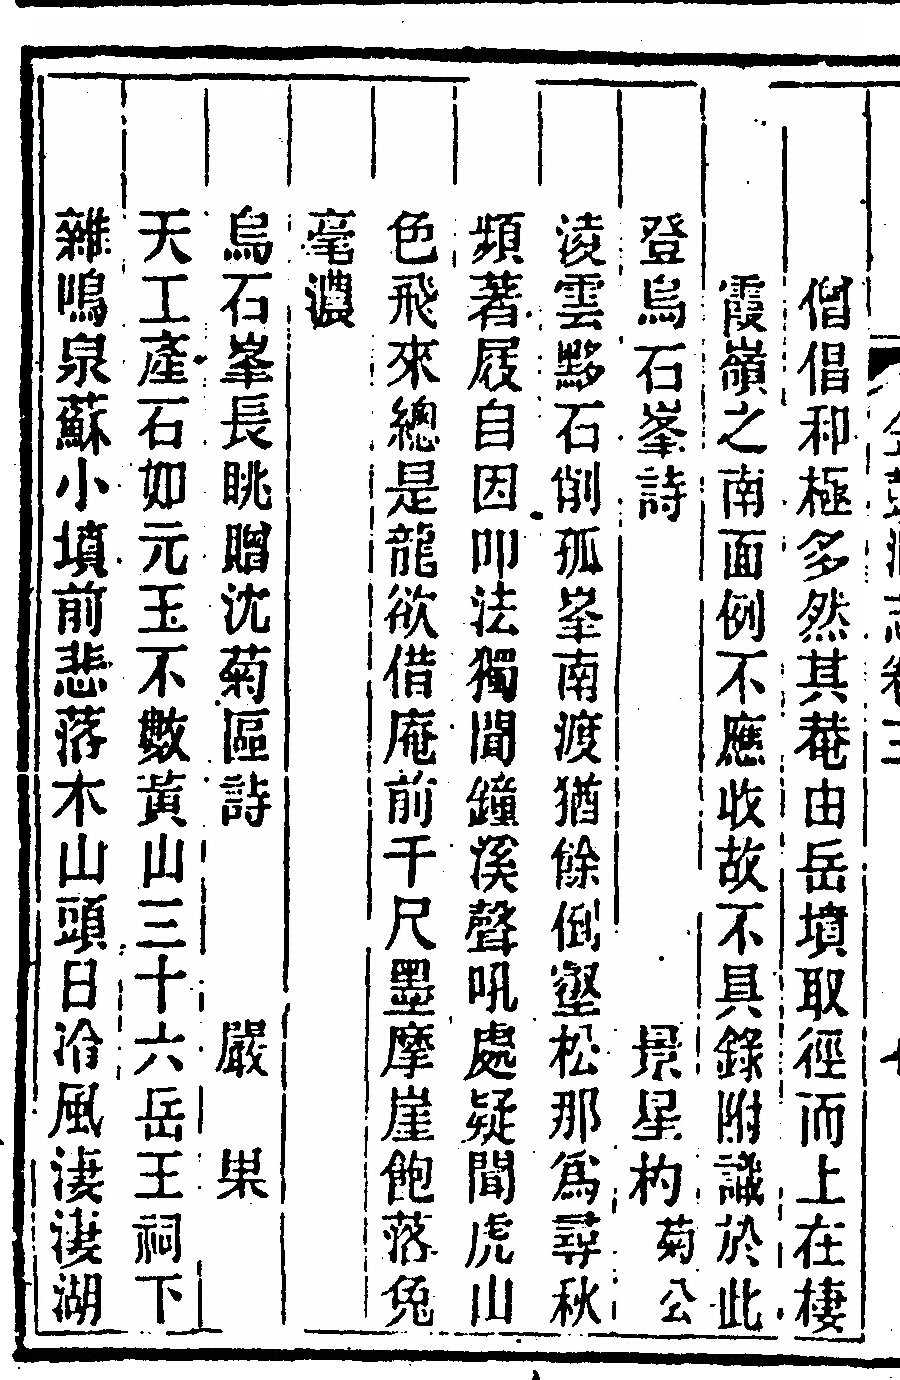 僧倡和極多然其菴由岳墳取徑而上在棲
霞嶺之南面例不應收故不具錄附識於此
登烏石峯詩 景星杓 菊公
淩雲黟石削孤峯南渡猶餘倒壑松那爲尋秋
頻著屐自因叩法獨聞鐘溪聲吼處疑聞虎山
色飛來總是龍欲借庵前千尺墨摩崖飽落兔
毫濃
烏石峯長眺贈沈菊區詩 嚴杲
天工產石如元玉不數黃山三十六岳王祠下
雜鳴泉蘇小墳前悲落木山頭日冷風淒淒湖